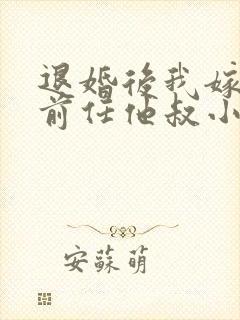 退婚後我嫁
前任他叔小
安蘇萌